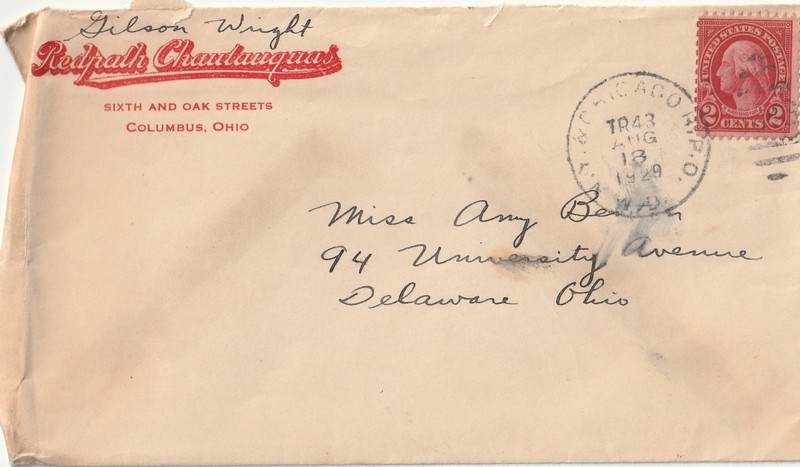 Gilson Wright
Redpath Chautauquas
SIXTH AND OAK STREETS
COLUMBUS, OHIO
UNITED STATES POSTAGE
2 CENTS 2
N.Y. & CHICAGO R.P.O.
TR43
AUG
13
1929
W.D.
Miss Amy
94 University Avenue
Delaware Ohio